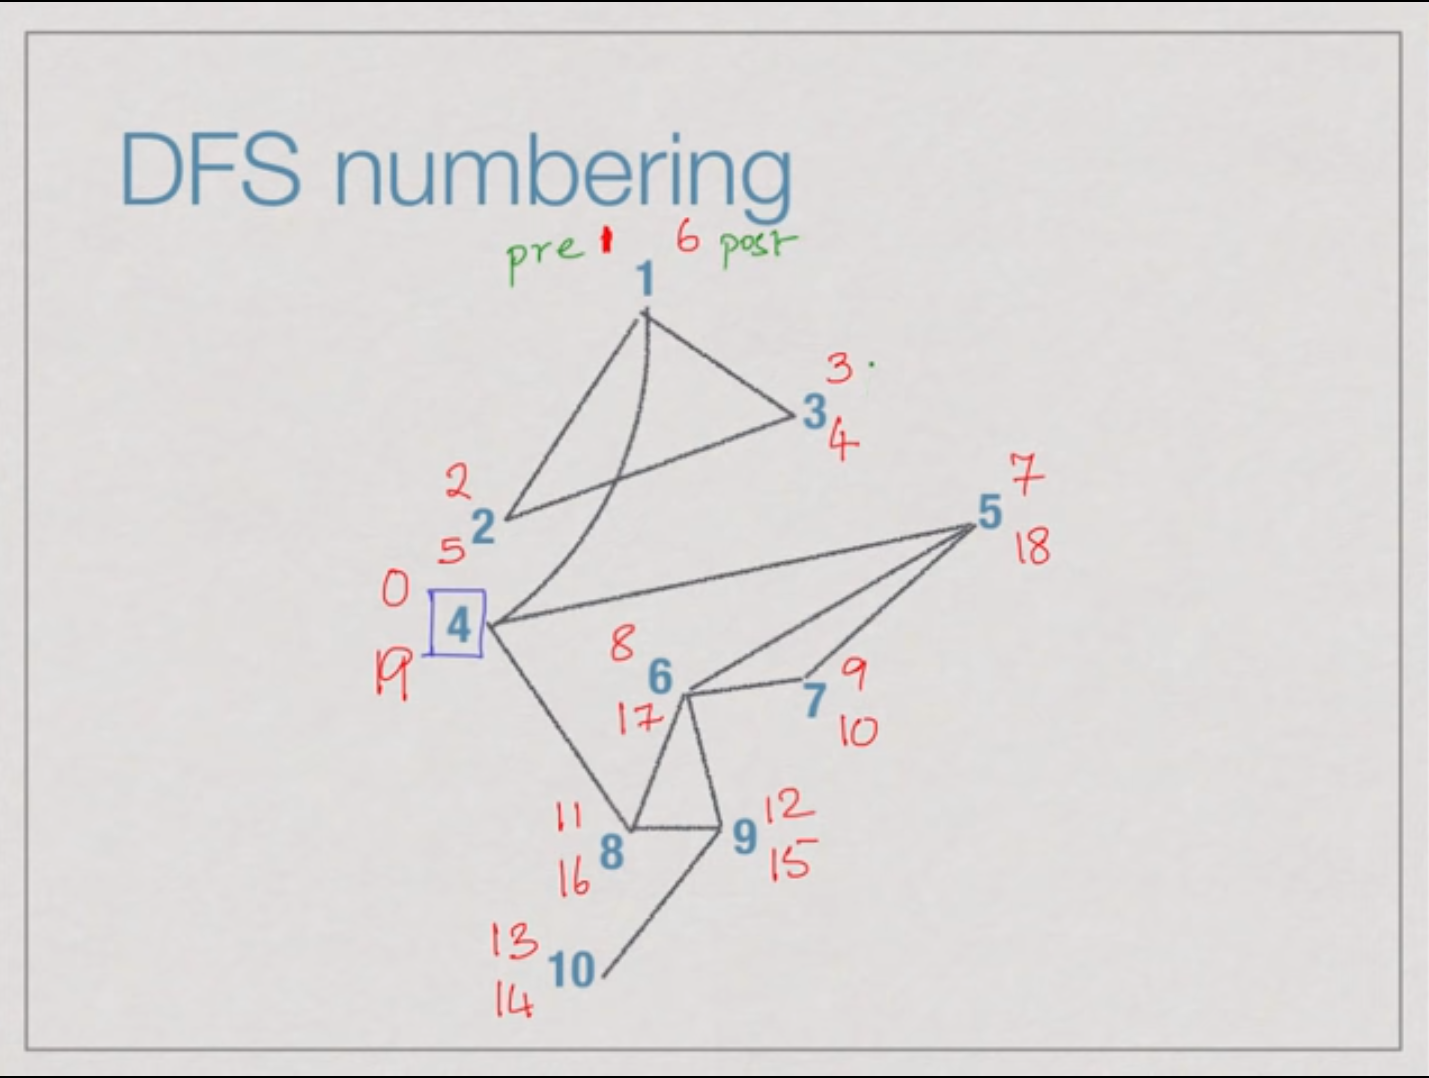 DFS numbering
pre 1 6 post
1
3
3
4
2
2
5
7
5
18
0
4
19
8
6
17
9
7
10
11
8
16
12
9
15
13
10
14